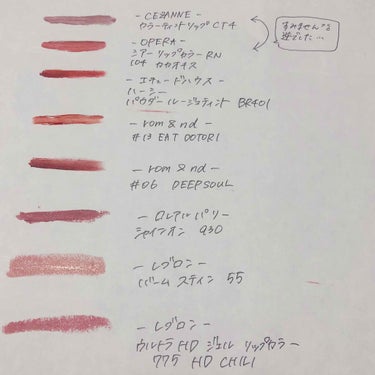 - CEZANNE -
カラーティントリップ CT4
- OPERA -
シアーリップカラー RN
104 カカオキス
すみません💦
逆でした…
- エチュードハウス -
ハーシー
パウダールージュティント BR401
- rom & nd -
#13 EAT DOTORI
- rom & nd -
#06 DEEPSOUL
- ロレアルパリ -
シャインオン 930
- レブロン -
バームステイン 55
- レブロン -
ウルトラ HD ジェル リップカラー
775 HD CHILI